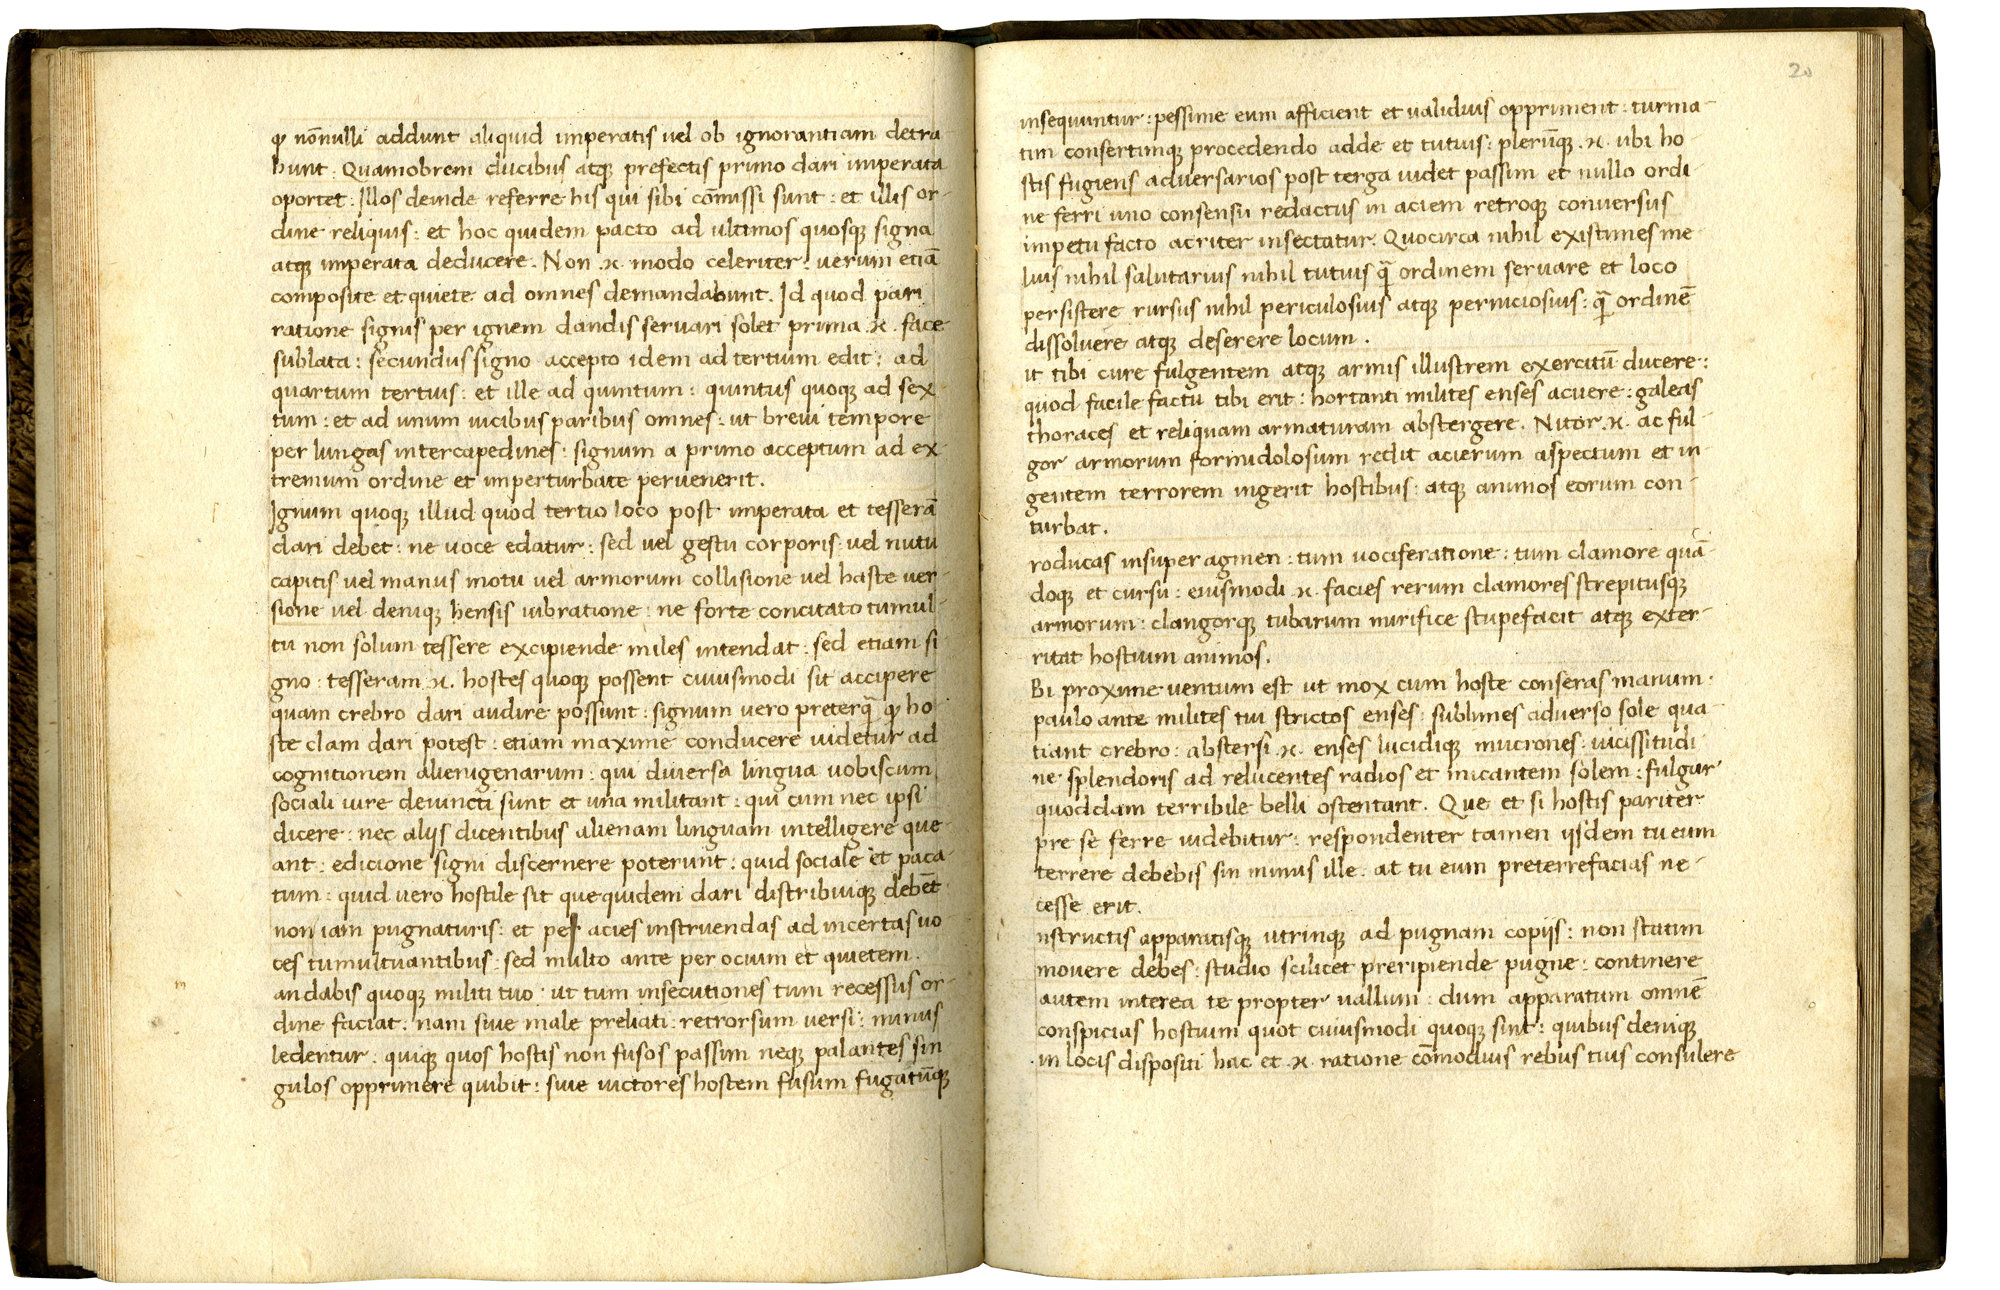 ꝙ nōnulli addunt aliquid imperatis vel ob ignorantiam detra
hunt. Quamobrem ducibus atqꝫ prefectis primo dari imperata
oportet. Illos deinde referre his qui sibi cōmissi sunt: et illis or-
dine reliquis: et hoc quidem pacto ad ultimos quosqꝫ signa
atqꝫ imperata deducere. Non .n. modo celeriter: verum etiā
composite et quiete ad omnes demandabunt. Id quod pari
ratione signis per ignem dandis servari solet prima .n. face
sublata: secundus signo accepto idem ad tertium edit: ad
quartum tertius: et ille ad quintum: quintus quoqꝫ ad sex
tum: et ad unum vicibus paribus omnes: ut brevi tempore
per lungas intercapedines: signum a primo acceptum ad ex-
tremum ordine et imperturbate pervenerit.
s
Ignum quoqꝫ illud quod tertio loco post imperata et tesserā
dari debet: ne voce edatur: sed vel gestu corporis vel nutu
capitis vel manus motu vel armorum collisione vel haste ver-
sione vel deniqꝫ hensis vibratione: ne forte concitato tumul-
tu non solum tessere excipiende miles intendat: sed etiam si
gno: tesseram .n. hostes quoqꝫ possent cuiusmodi sit accipere
quam crebro dari audire possunt: signum vero preterq̄ ꝙ ho
ste clam dari potest: etiam maxime conducere videtur ad
cognitionem alienigenarum: qui diversa lingua vobiscum
sociali iure devincti sunt et una militant: qui cum nec ipsi
dicere: nec alijs dicentibus alienam linguam intelligere que-
ant: edicione signi discernere poterunt: quid sociale et paca-
tum: quid vero hostile sit que quidem dari distribuiqꝫ debēt
non iam pugnaturis: et per acies instruendas ad incertas vo
ces tumultuantibus: sed multo ante per ocium et quietem.
m
andabis quoqꝫ militi tuo: ut tum insecutiones tum recessus or-
dine faciat: nam sive male preliati: retrorsum versi: minus
ledentur: quiqꝫ quos hostis non fusos passim neqꝫ palantes sin
gulos opprimere quibit: sive victores hostem fusum fugatūqꝫ
20
insequuntur: pessime eum afficient et validius oppriment: turma-
tim consertimqꝫ procedendo adde et tutius: plerūqꝫ .n. ubi ho-
stis fugiens adversarios post terga videt passim et nullo ordi-
ne ferri uno consensu redactus in aciem retroqꝫ conversus
impetu facto acriter insectatur. Quocirca nihil existimes me-
lius nihil salutarius nihil tutius q̄ ordinem servare et loco
persistere rursus nihil periculosius atqꝫ perniciosius: q̄ ordinē
dissolvere atqꝫ deserere locum.
it tibi cure fulgentem atqꝫ armis illustrem exercitū ducere:
quod facile factu tibi erit: hortanti milites enses acuere: galeas
thoraces et reliquam armaturam abstergere. Nitor .n. ac ful-
gor armorum formidolosum redit acierum aspectum et in
gentem terrorem ingerit hostibus: atqꝫ animos eorum con-
turbat.
roducas insuper agmen: tum vociferatione: tum clamore quā-
doqꝫ et cursu: eiusmodi .n. facies rerum clamores strepitusqꝫ
armorum: clangorqꝫ tubarum mirifice stupefacit atqꝫ exter-
ritat hostium animos.
Bi proxime ventum est ut mox cum hoste conseras manum.
paulo ante milites tui strictos enses: sublimes adverso sole qua-
tiant crebro: abstersi .n. enses lucidiqꝫ mucrones: vicissitudi
ne splendoris ad relucentes radios et micantem solem: fulgur
quoddam terribile belli ostentant. Que et si hostis pariter
pre se ferre videbitur: respondenter tamen ijsdem tu eum
terrere debebis sin minus ille. at tu eum preterrefacias ne-
cesse erit.
nstructis apparatisqꝫ utrinqꝫ ad pugnam copijs: non statim
movere debes: studio scilicet preripiende pugne: continere
autem interea te propter vallum: dum apparatum omnē
conspicias hostium quot cuiusmodi quoqꝫ sint: quibus deniqꝫ
in locis dispositi hac et .n. ratione cōmodius rebus tuis consulere